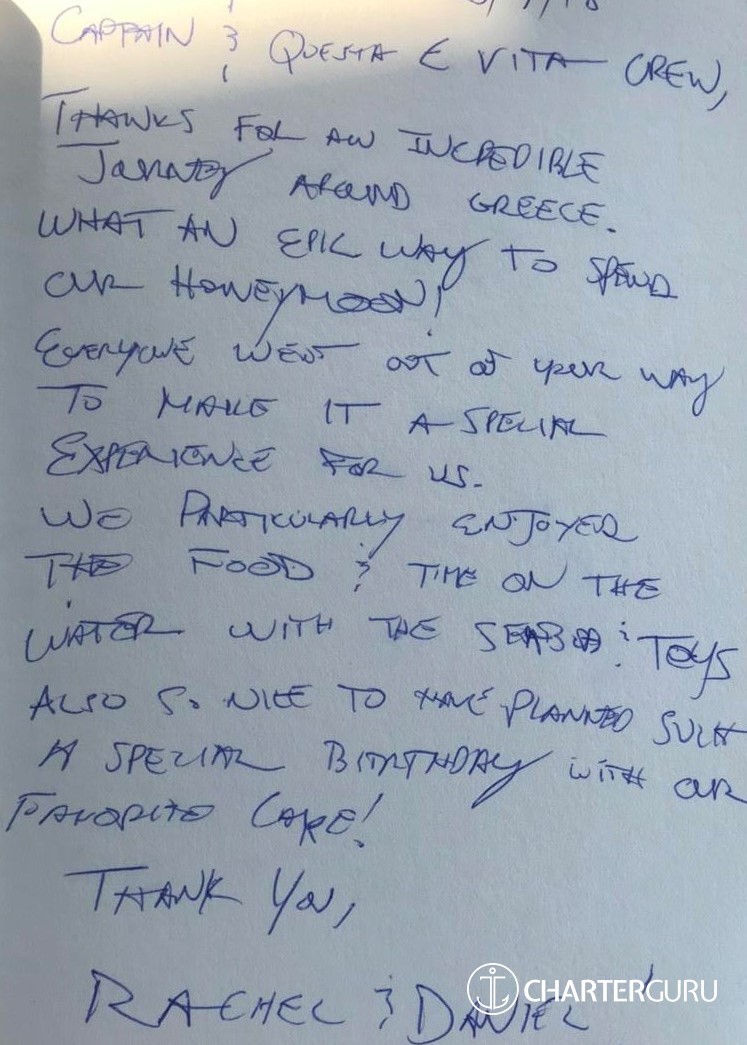 CAPTAIN & QUESTA E VITA CREW,
THANKS FOR AN INCREDIBLE
JOURNEY AROUND GREECE.
WHAT AN EPIC WAY TO SPEND
OUR HONEYMOON!
EVERYONE WENT OUT OF YOUR WAY
TO MAKE IT A SPECIAL
EXPERIENCE FOR US.
WE PARTICULARLY ENJOYED
THE FOOD & TIME ON THE
WATER WITH THE SEABOB & TOYS
ALSO SO NICE TO HAVE PLANNED SUCH
A SPECIAL BIRTHDAY WITH OUR
FAVORITE CAKE!
THANK YOU,
RACHEL & DANIEL
CHARTERGURU